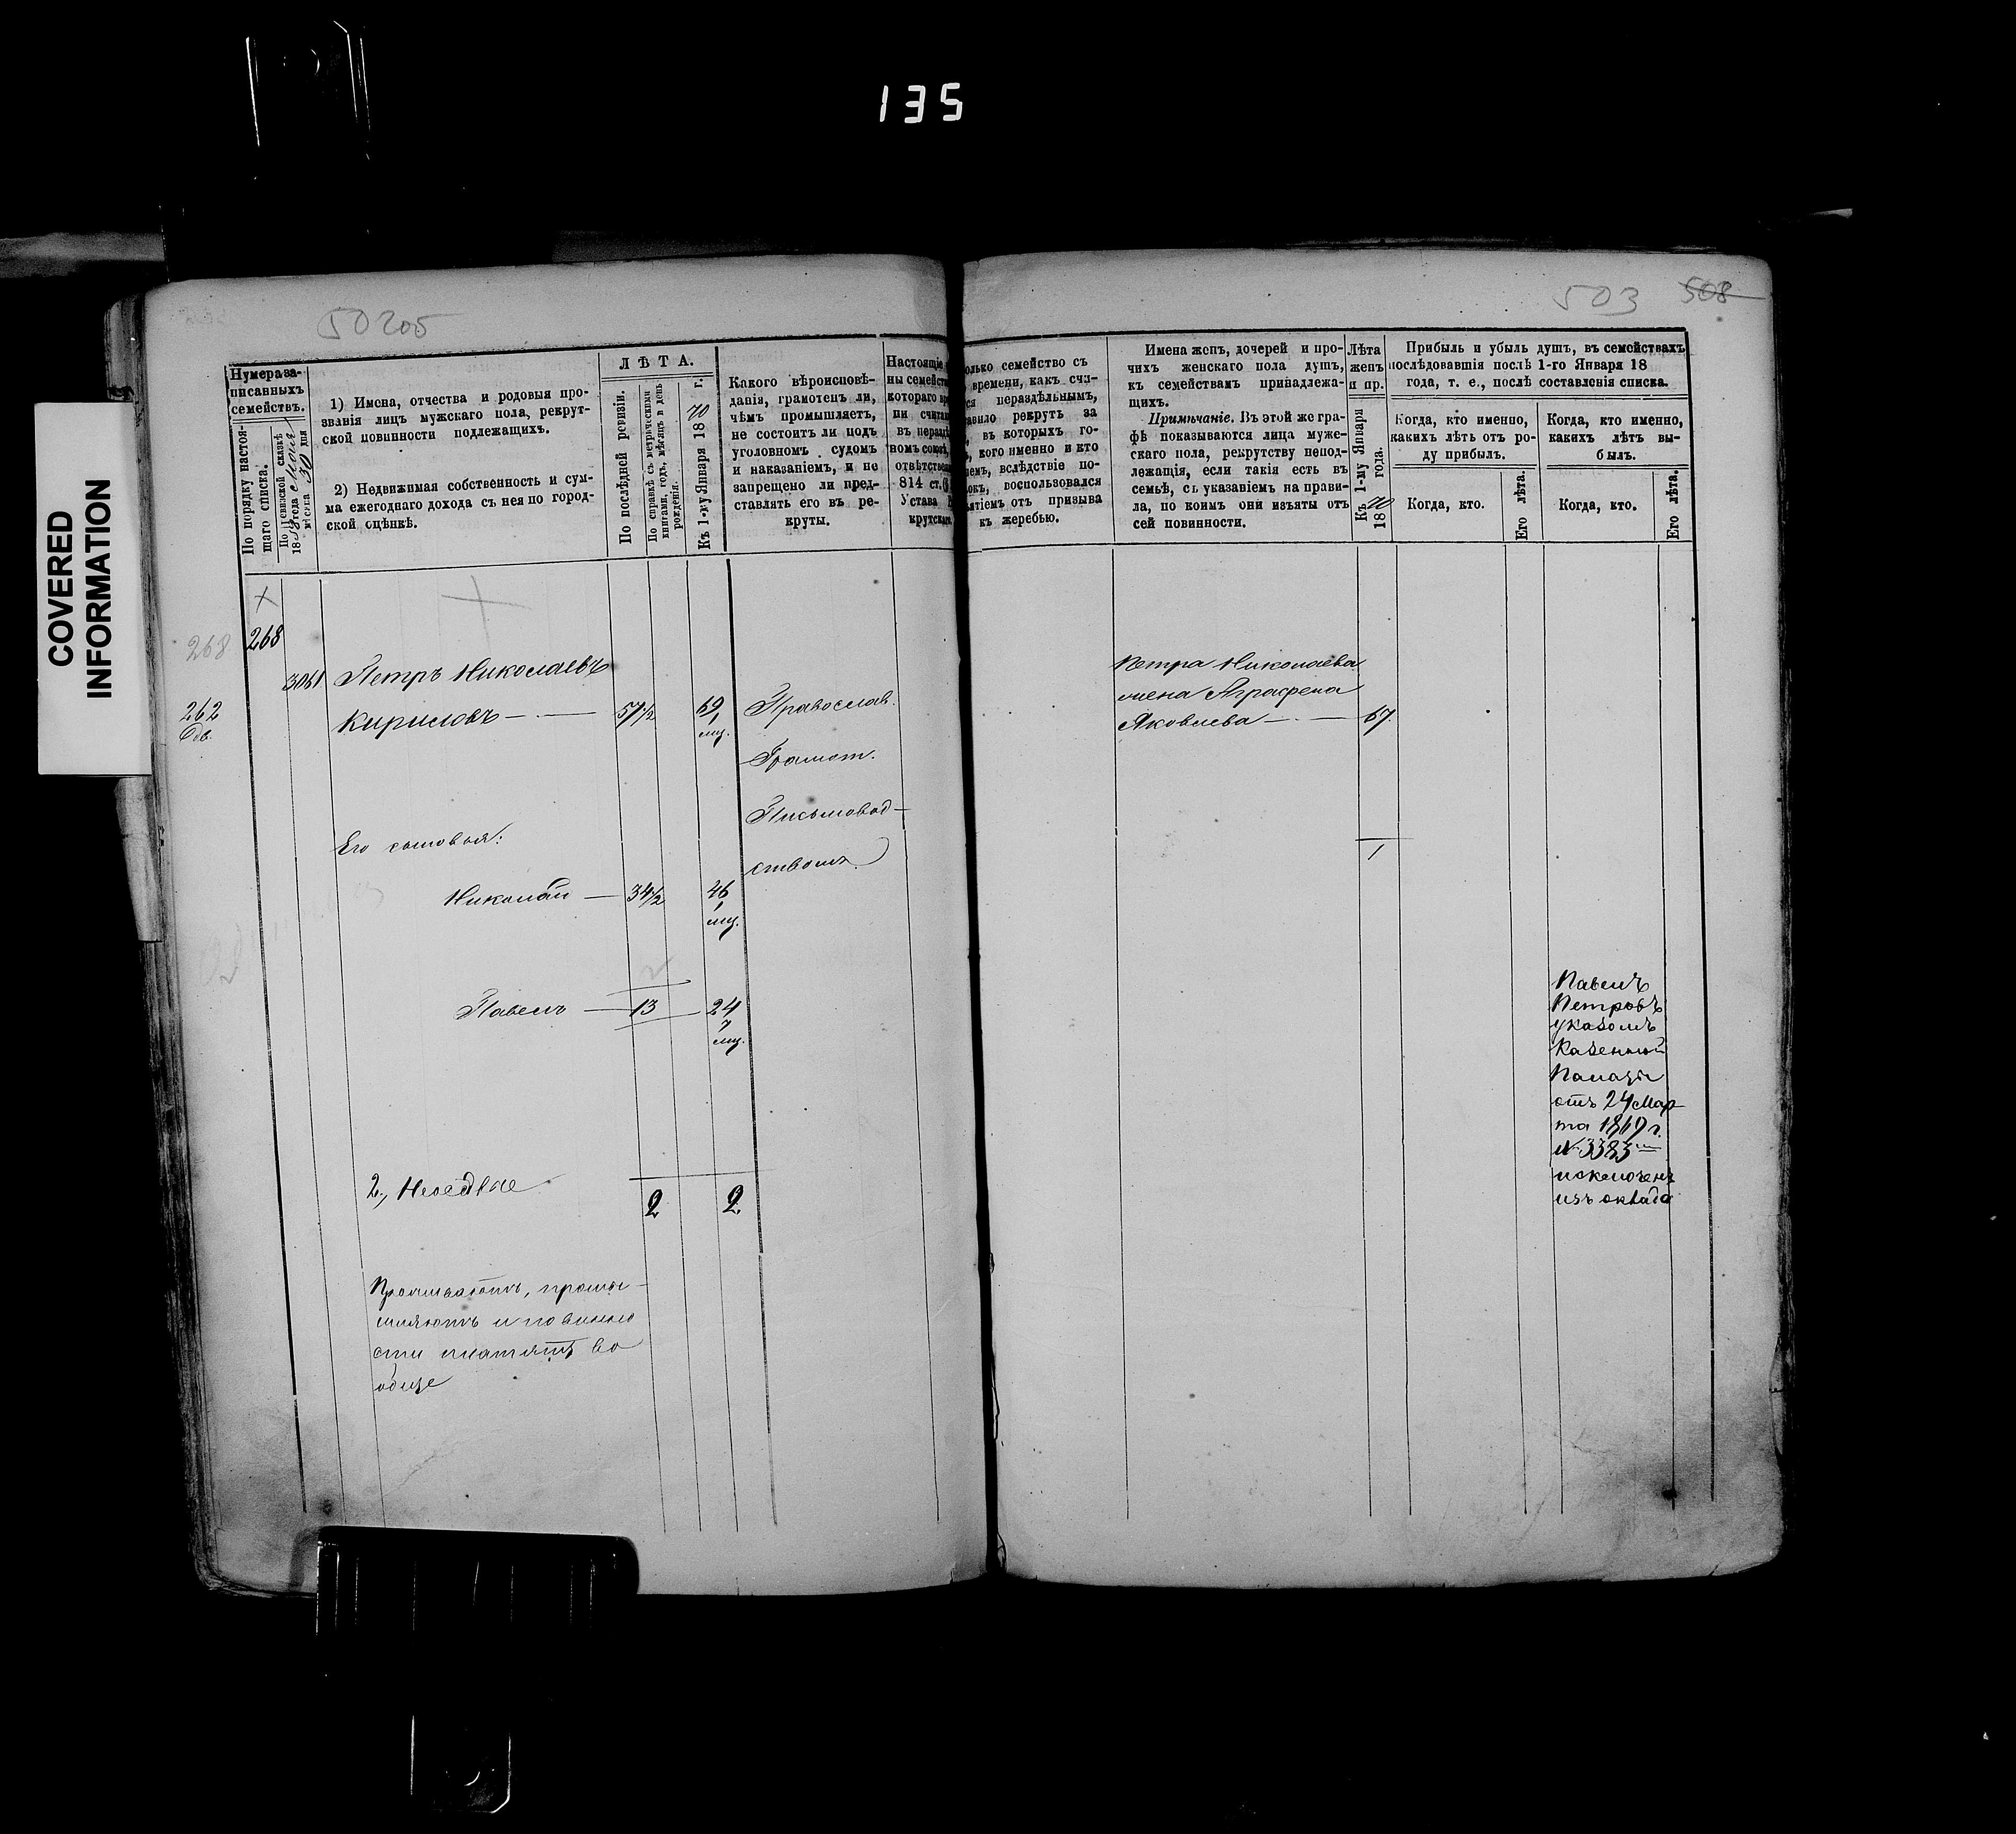 135
COVERED
INFORMATION
50205
503 508
Нумера за-
писанныхъ
семействъ.
По порядку настоя-
щаго списка.
По ревизской сказкѣ
1858 года Мая
мѣсяца 30 дня
1) Имена, отчества и родовыя про-
званія лицъ мужскаго пола, рекрут-
ской повинности подлежащихъ.
2) Недвижимая собственность и сум-
ма ежегоднаго дохода съ нея по город-
ской оцѣнкѣ.
ЛѢТА.
По послѣдней ревизіи.
По справкѣ съ метрическими
книгами, годъ, мѣсяцъ и день
рожденія.
Къ 1-му Января 1870 г.
Какого вѣроисповѣ-
данія, грамотенъ ли,
чѣмъ промышляетъ,
не состоитъ ли подъ
уголовномъ судомъ
и наказаніемъ, и не
запрещено ли пред-
ставлять его въ ре-
круты.
Настоящіе
ны семейст
котораго вр
ли счита
въ нераздѣ
номъ союзѣ,
отвѣтствен
814 ст.
Устава
крутскаг
олько семейство съ
времени, какъ счи-
ся нераздѣльнымъ,
авило рекрутъ за
въ которыхъ го-
кого именно и кто
емъ, вслѣдствіе по-
окъ, воспользовался
ятіемъ отъ призыва
къ жеребью.
Имена женъ, дочерей и про-
чихъ женскаго пола душъ,
къ семействамъ принадлежа-
щихъ.
Примѣчаніе. Въ этой же гра-
фѣ показываются лица муже-
скаго пола, рекрутству непод-
лежащія, если такія есть въ
семьѣ, съ указаніемъ на прави-
ла, по коимъ они изъяты отъ
сей повинности.
Лѣта
женъ
и пр.
Къ 1-му Января
1870 года.
Прибыль и убыль душъ, въ семействахъ
послѣдовавшія послѣ 1-го Января 18
года, т. е., послѣ составленія списка.
Когда, кто именно,
какихъ лѣтъ отъ ро-
ду прибылъ.
Когда, кто.
Его лѣта.
Когда, кто именно,
какихъ лѣтъ вы-
былъ.
Когда, кто.
Его лѣта.
268 268
3061 Петръ Николаевъ
262 Кириловъ — 57½ 69 Православ.
1
мц.
Грамот.
Письмовод-
ствомъ
Его сыновья:
Николай — 34½ 46
1
мц.
Павелъ — 13 24
7
мц.
2., Неседлые
2 2.
Проживаютъ, промы-
шляютъ и повинно
сти платятъ во
обще
Петра Николаева
жена Аграфена
Яковлева — 67.
1
Павелъ
Петровъ
указомъ
Казенной
Палаты
отъ 24 Мар-
та 1869 г.
№ 3383
исключенъ
изъ оклада